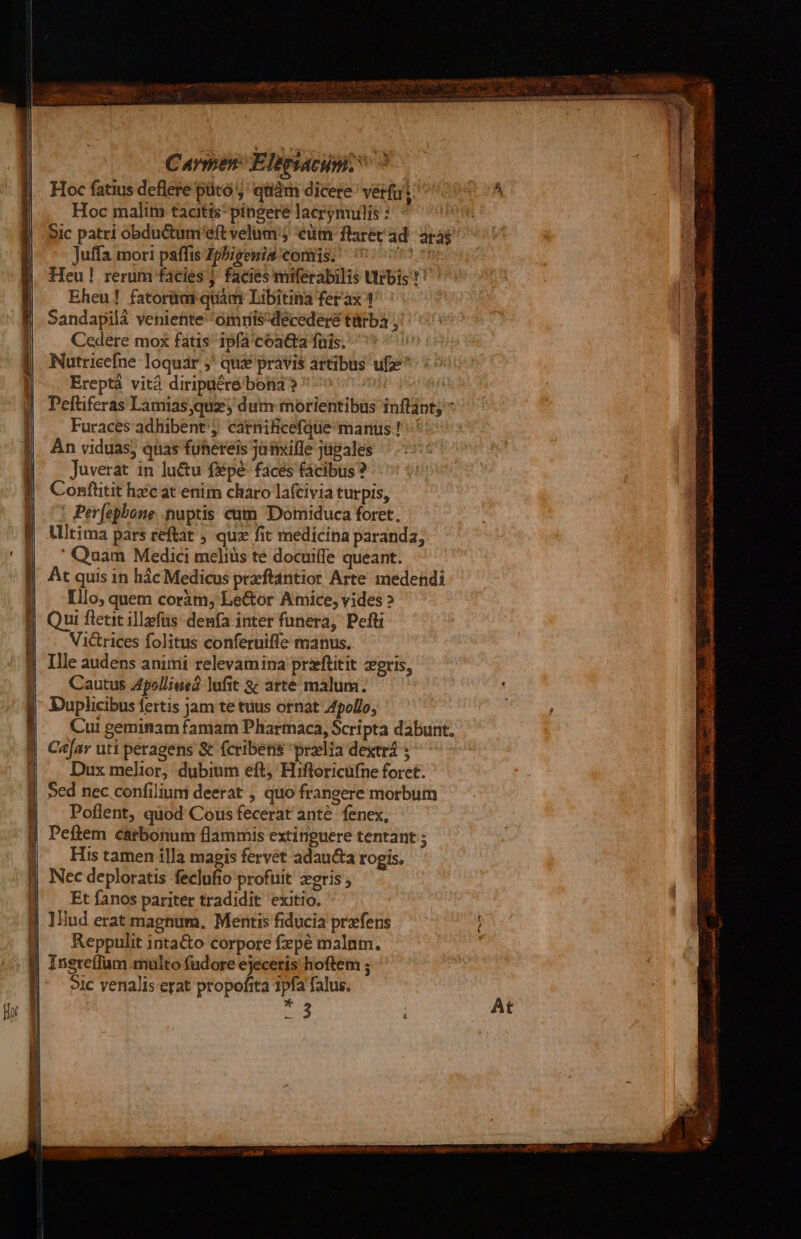 Carmen Elegiacum.
Hoc ſatius deflere puto, quàm dicere verſu;
Hoc malim tacitis pingere lacrymulis:
Sic patri obductum eſt velum, cùm ſtaret ad aras
Juſſa mori paſſis Iphigenia comis.
Heu! rerum facies, facies miſerabilis Urbis!
Eheu! fatorum quàm Libitina ferax!
Sandapilâ veniente omnis decedere turba,
Cedere mox fatis ipſa coacta ſuis.
Nutriceſne loquar, quæ pravis artibus uſæ
Ereptâ vitâ diripuêre bona?
Peſtiferas Lamias, quæ, dum morientibus inſtant,
Furaces adhibent, carnificeſque manus!
An viduas, quas funereis junxiſſe jugales
Juverat in luctu ſæpè faces facibus?
Conſtitit hæc at enim charo laſcivia turpis,
Perſephone nuptis cum Domiduca foret.
Ultima pars reſtat, quæ fit medicina paranda,
Quam Medici meliùs te docuiſſe queant.
At quis in hâc Medicus præſtantior Arte medendi
Illo, quem coràm, Lector Amice, vides?
Qui ſtetit illæſus denſa inter funera, Peſti
Victrices ſolitus conſeruiſſe manus.
Ille audens animi relevamina præſtitit ægris,
Cautus Apollineâ luſit & arte malum.
Duplicibus ſertis jam te tuus ornat Apollo,
Cui geminam famam Pharmaca, Scripta dabunt.
Cæſar uti peragens & ſcribens prælia dextrâ;
Dux melior, dubium eſt, Hiſtoricuſne foret.
Sed nec conſilium deerat, quo frangere morbum
Poſſent, quod Cous fecerat antè ſenex,
Peſtem carbonum flammis extinguere tentant;
His tamen illa magis fervet adaucta rogis.
Nec deploratis ſecluſio profuit ægris,
Et ſanos pariter tradidit exitio.
Illud erat magnum, Mentis fiducia præſens
Reppulit intacto corpore ſæpè malum.
Ingreſſum multo ſudore ejeceris hoſtem;
Sic venalis erat propoſita ipſa ſalus.
* 3
At
Hoc